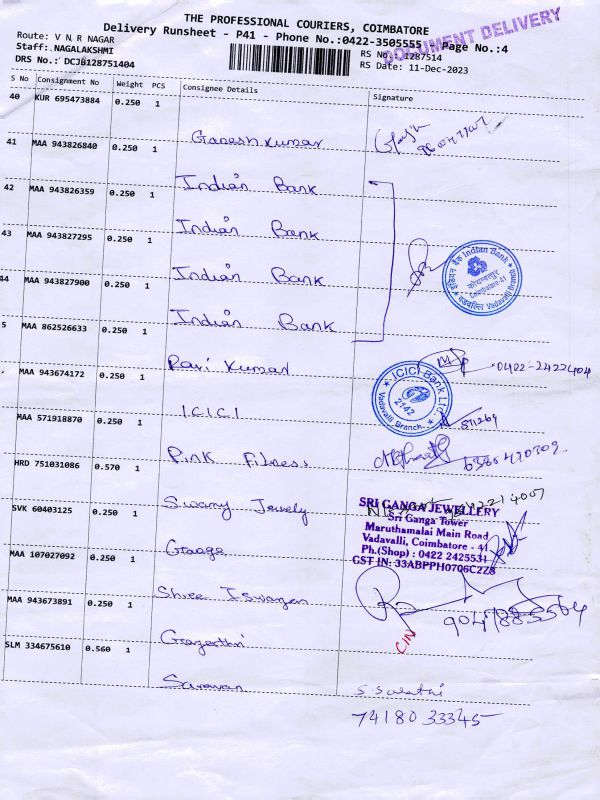 THE PROFESSIONAL COURIERS, COIMBATORE
Delivery Runsheet - P41 - Phone No.:0422-3505555 Page No.:4
DOCUMENT DELIVERY
Route: V N R NAGAR
Staff: NAGALAKSHMI
DRS No.: DCJB128751404
RS No.: 1287514
RS Date: 11-Dec-2023
S No Consignment No Weight PCS Consignee Details Signature
40 KUR 695473884 0.250 1 Ganesh Kumar
41 MAA 943826840 0.250 1 Indian Bank
42 MAA 943826359 0.250 1 Indian Bank
43 MAA 943827295 0.250 1 Indian Bank
44 MAA 943827900 0.250 1 Indian Bank
इंडियन बैंक Indian Bank
कोयम्बत्तूर
Coimbatore-41
Vadavalli Branch
5 MAA 862526633 0.250 1 Ravi Kumar 0422-2422404
MAA 943674172 0.250 1 ICICI
ICICI Bank Ltd.
2142
Vadavalli Branch
MAA 571918870 0.250 1 Pink Fitness
HRD 751031086 0.570 1 Swamy Jewely
SRI GANGA JEWELLERY
Sri Ganga Tower
Maruthamalai Main Road
Vadavalli, Coimbatore - 41
Ph.(Shop) : 0422 2425531
GST IN: 33ABPPH0706C2Z8
SVK 60403125 0.250 1
MAA 107027092 0.250 1 Shree
MAA 943673891 0.250 1
SLM 334675610 0.560 1 Saravan
74180 33345